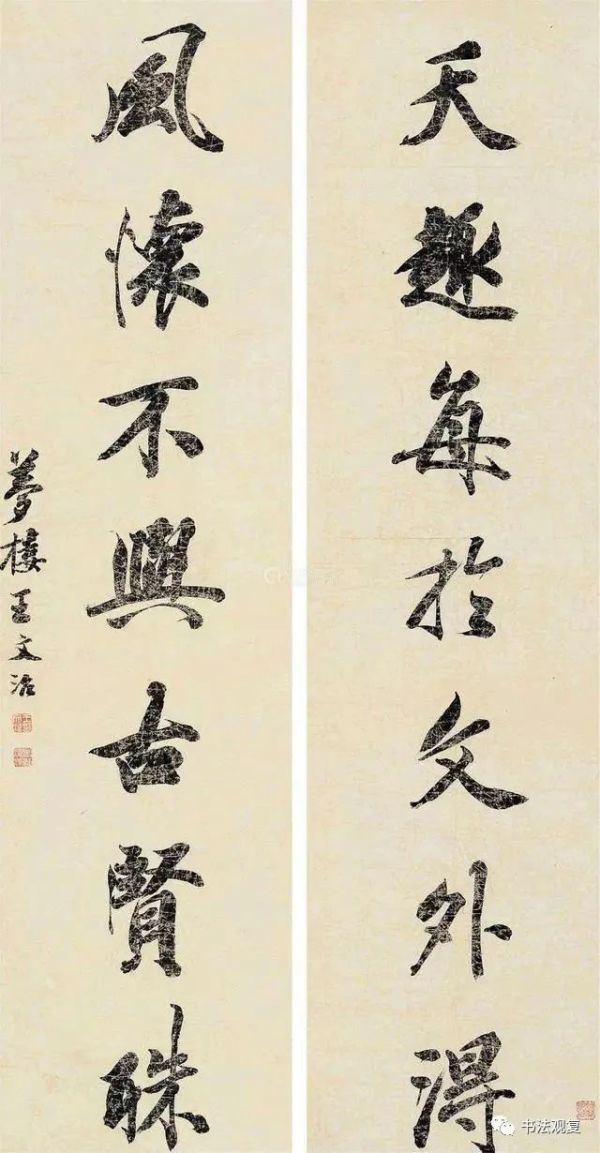 天趣每於文外得
風懷不與古賢殊
夢樓王文治
书法观复